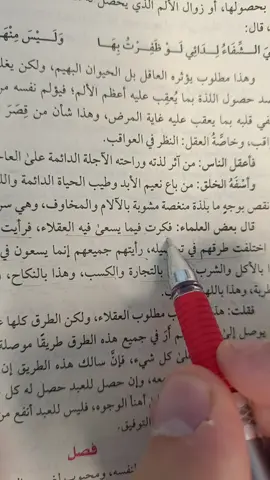 بحصولها، أو زوال الألم الذي يحصل
قال:
هِيَ الشِّفَاءُ لِدَائِي لَوْ ظَفِرْتُ بِهَا وَلَيْسَ مِنْهَا
وهذا مطلوب يؤثره العاقل بل الحيوان البهيم، ولكن
قصد حصول اللذة بما يُعقِب عليه أعظم الألم؛ فيؤلم نفسه من
في قلبه بما يعقب عليه غاية المرض، وهذا شأن من قِصَرَ
العواقب، وخاصَّةُ العقل: النظر في العواقب.
فأعقل الناس: من آثر لذته وراحته الآجلة الدائمة على العا
وأسْفَهُ الخلق: من باع نعيم الأبد وطيب الحياة الدائمة
نقص بوجهٍ ما بلذة منغصة مشوبة بالآلام والمخاوف، وهي
قال بعض العلماء: فكرت فيما يسعى فيه العقلاء، فرأيت
اختلفت طرقهم في رأيتهم جميعهم إنما يسعون في
بالأكل والشرب بالتجارة والكسب، وهذا بالنكاح،
وهذا
فقلت: مطلوب العقلاء، ولكن الطرق كلها
يوصل أرَ في جميع هذه الطرق طريقًا موصلة
على كل شيء، فإنَّ سالك هذه الطريق إن
وإن حصل للعبد حصل له كل
أهنأ الوجوه، فليس للعبد أنفع من
التوفيق.
فصل
لنفسه، ومحبوب